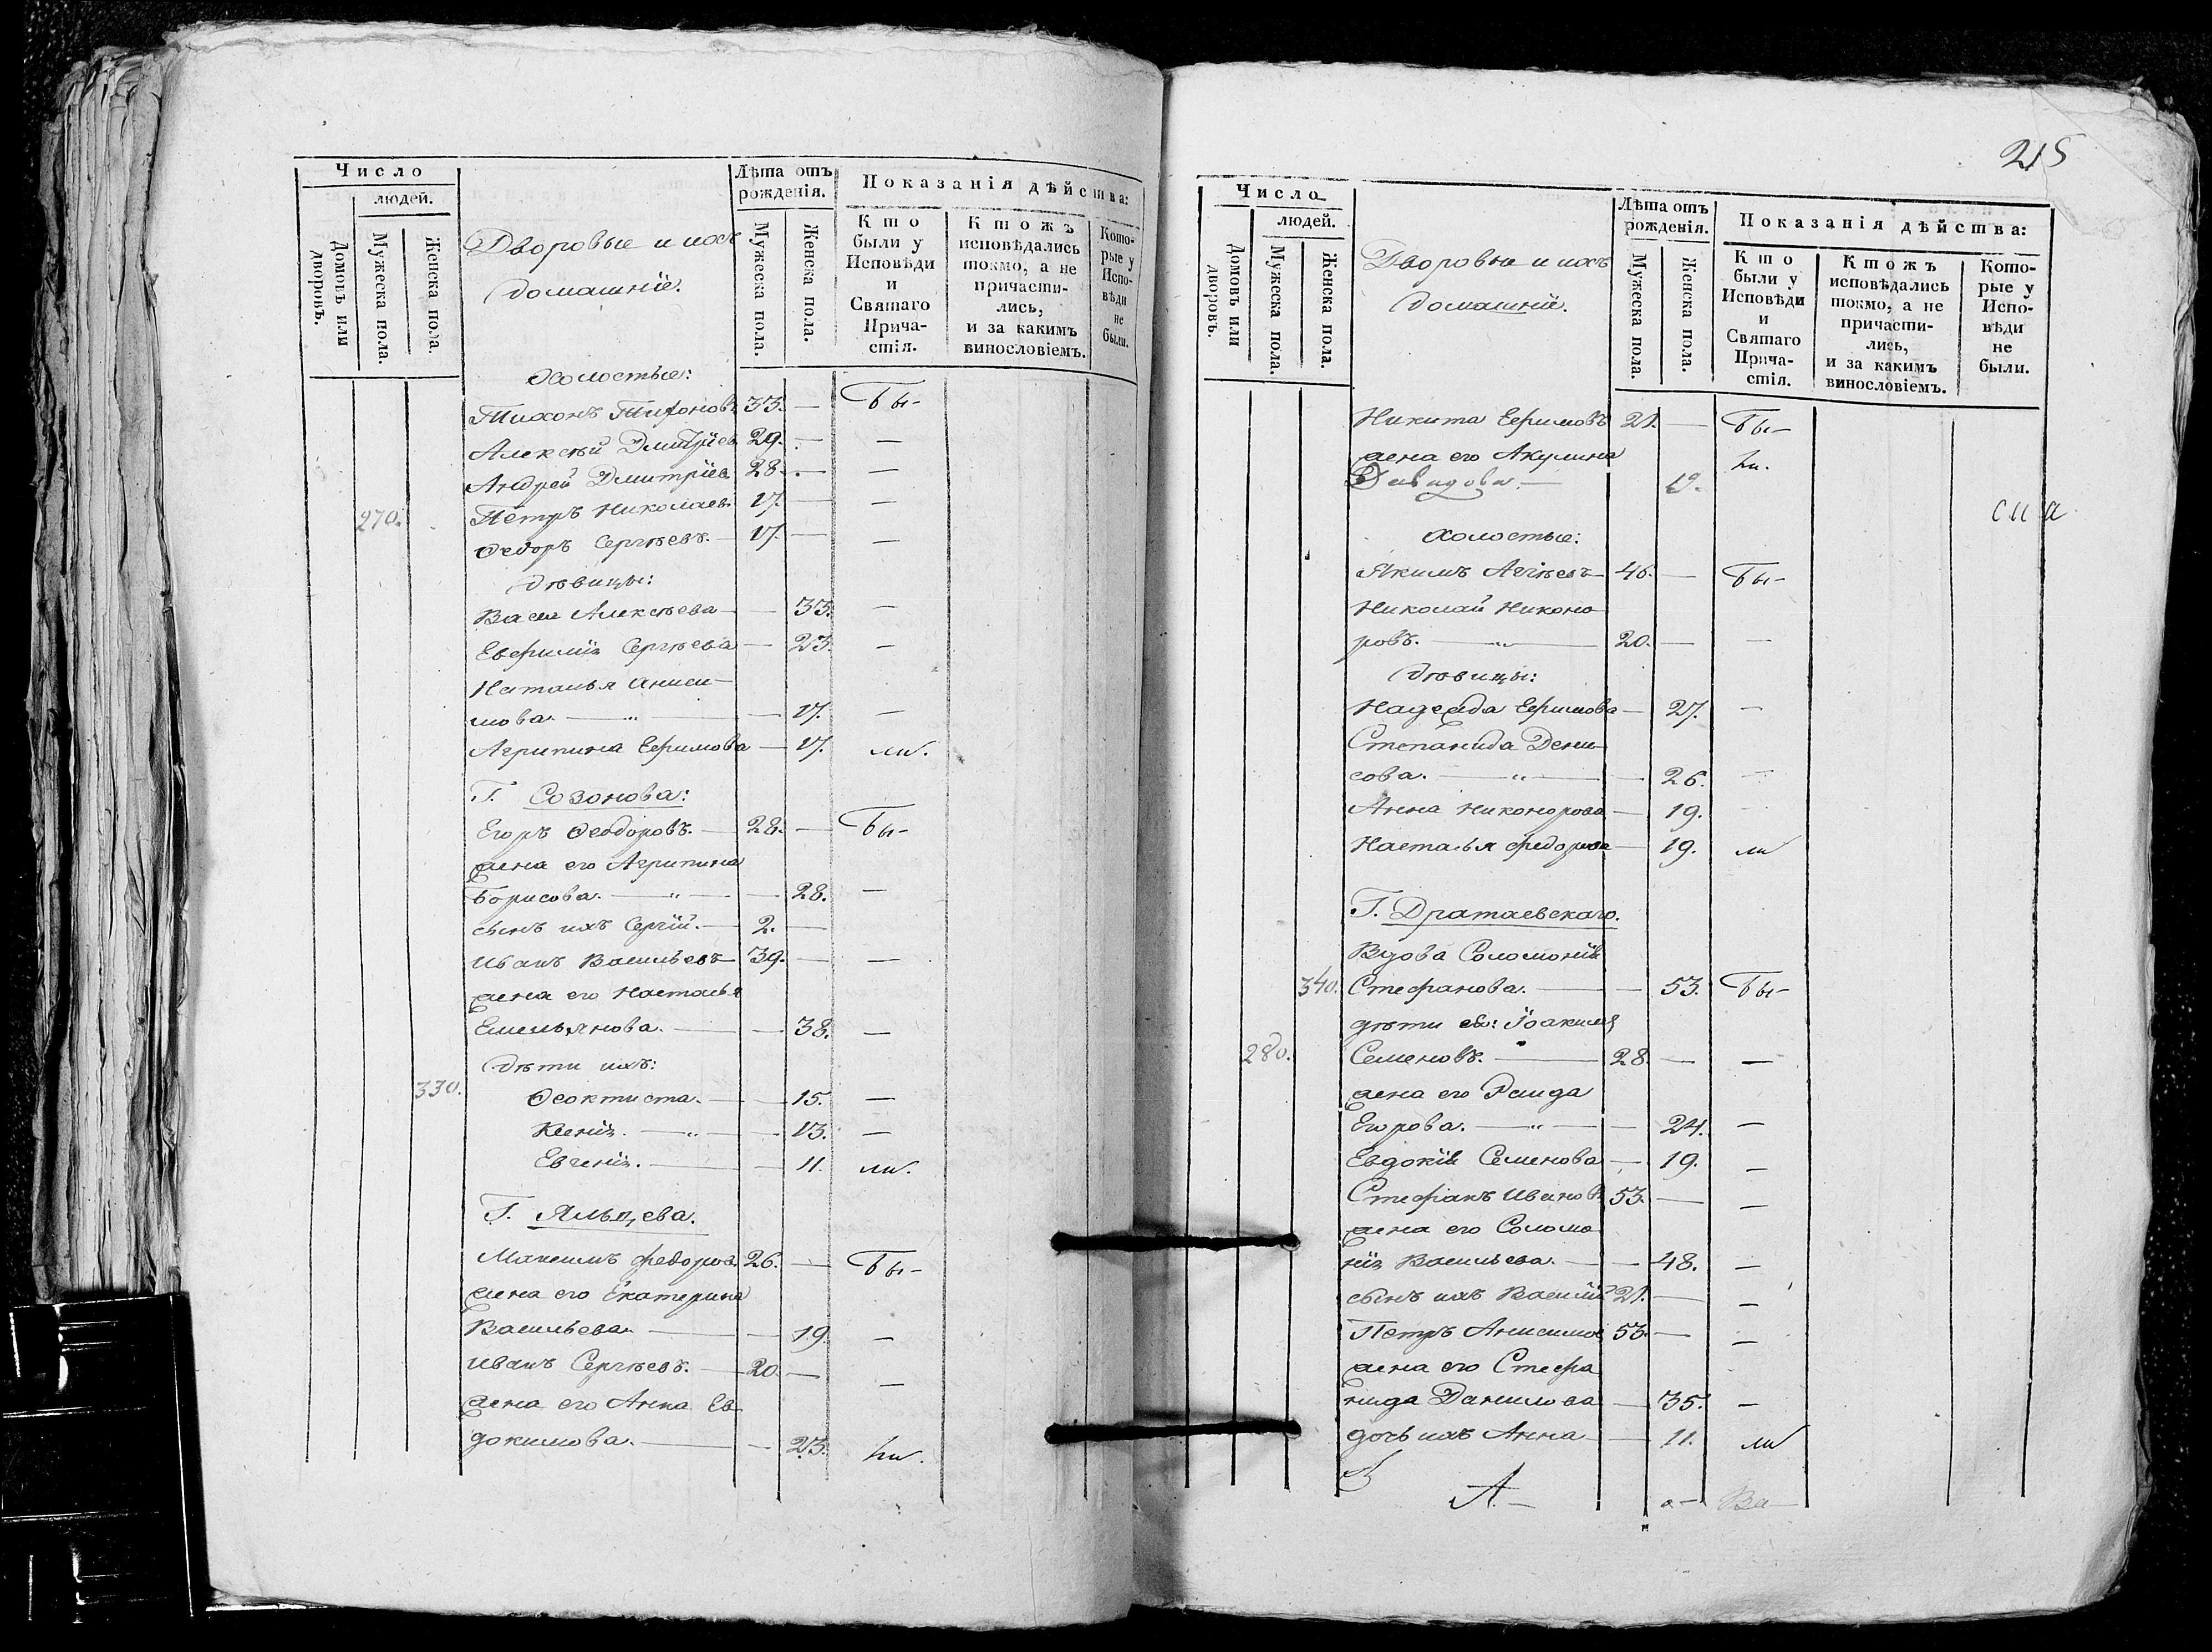 Число
людей.
Домовъ или дворовъ.
Мужеска пола.
Женска пола.
Дворовые и ихъ
домашніе.
Лѣта отъ
рожденія.
Мужеска пола.
Женска пола.
Показанія дѣйства:
Кто
были у
Исповѣди
и
Святаго
Прича-
стія.
Ктожъ
исповѣдались
токмо, а не
причасти-
лись,
и за какимъ
винословіемъ.
Кото-
рые у
Испо-
вѣди
не
были.
Холостые:
Тихонъ 33. — Бы-
Алексѣй Дмитріев 29. — —
Андрей Дмитріев 28. — —
270. Петръ Николаев 17. — —
Ѳедоръ Сергѣевъ. — 17. — —
Дѣвицы:
Васса Алексѣева — — 33. —
Евфимія Сергѣева — 23. —
Наталья Аниси-
мова. — „ — — 17. —
Агрипина Ефимова — 17. ли.
Г. Созонова:
Егоръ Ѳеодоровъ. — 28. — Бы-
жена его Агрипина
Борисова. — „ — — 28. —
сынъ ихъ Сергій. — 2. —
Иванъ Васильевъ — 39. — —
жена его Настасья
Емельянова. — — 38. —
дѣти ихъ:
330. Ѳеоктиста. — — 15. —
Ксенія. — „ — — 13. —
Евгенія. — — 11. ли.
Г. Яльцева.
Максимъ Федоров. 26. — Бы-
жена его Екатерина
Васильева — — 19. —
Иванъ Сергѣевъ. — 20. — —
жена его Анна Ев-
докимова. — — 23. ли.
215
Число
людей.
Домовъ или дворовъ.
Мужеска пола.
Женска пола.
Дворовые и ихъ
домашніе.
Лѣта отъ
рожденія.
Мужеска пола.
Женска пола.
Показанія дѣйства:
Кто
были у
Исповѣди
и
Святаго
Прича-
стія.
Ктожъ
исповѣдались
токмо, а не
причасти-
лись,
и за какимъ
винословіемъ.
Кото-
рые у
Испо-
вѣди
не
были.
Никита Ефимовъ 21. — Бы-
жена его Акулина ли.
Давидова. — 19.
Холостые:
Якимъ — 46. — Бы-
Николай Никоно-
ровъ. — „ — 20. — —
Дѣвицы:
Надежда Ефимова — 27. —
Степанида Дени-
сова. — „ — — 26. —
Анна Никонорова — 19. —
Настасья Федорова — 19. ли
Г. Дратаевскаго.
Вдова Соломонія
340. Стефанова. — — 53. Бы-
дѣти ея: Іоакимъ
280. Семеновъ. — 28. — —
жена его Раида
Егорова. — „ — — 24. —
Евдокія Семенова — 19. —
Стефанъ Иванов 53. — —
жена его Соломо-
нія Васильева. — — 48. —
сынъ ихъ Василій 21. — —
Петръ Анисимов 53. — —
жена его Стефа-
нида Данилова — 35. —
дочь ихъ Анна — 11. ли